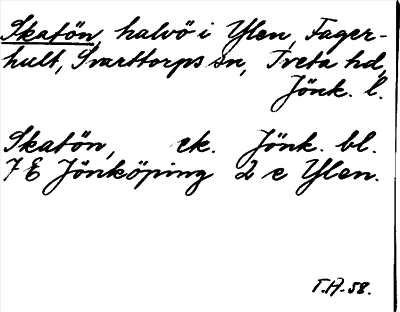 Skatön, halvö i Ylen, Fager-
hult, Svarttorps sn, Tveta hd,
Jönk. l.
Skatön, ek. Jönk. bl.
7 E Jönköping 2 e Ylen.
T.H. 58.